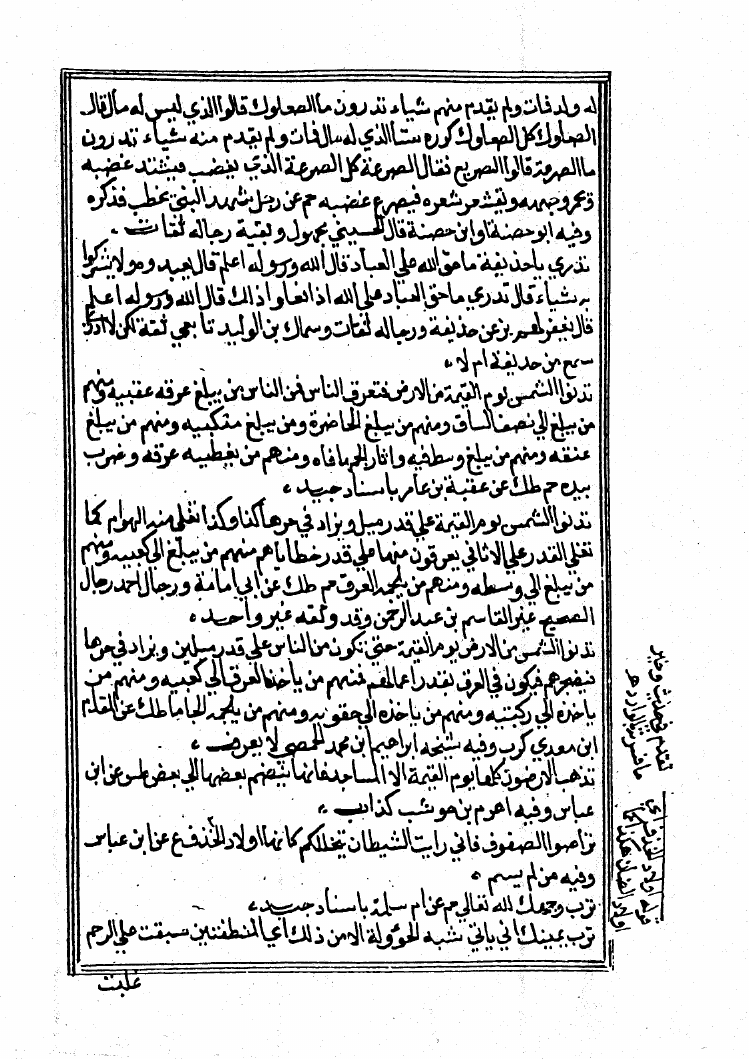 له ولد فات ولم يقدم منهم شياء تدرون ما الصعلوك قالوا الذي ليس له مال قال
الصعلوك كل الصعلوك كوره ستا الذي له مال فات ولم يقدم منه شياء تدرون
ما الصرعة قالوا الصريع فقال الصرعة كل الصرعة الذي يغضب فيشتد غضبه
ويحمر وجهه ويقشعر شعره فيصرع غضبه حم عن رجل شهد النبي يخطب فذكره
وفيه ابو حصنة او ابن حصنة قال الحسيني مجهول وبقية رجاله ثقات
تدري يا حذيفة ما حق الله علي العباد قال الله ورسوله اعلم قال يعبدوه ولا يشركوا
به شياء قال تدري ما حق العباد علي الله اذا فعلوا ذلك قال الله ورسوله اعلم
قال يغفر لهم بز عن حذيفة ورجاله ثقات وسماك بن الوليد تابعي ثقة لكن لا ادري
سمع من حذيفة ام لا
تدنوا الشمس يوم القيمة من الارض فتعرق الناس فمن الناس من يبلغ عرقه عقبيه ومنهم
من يبلغ الي نصف الساق ومنهم من يبلغ الخاصرة ومن يبلغ منكبيه ومنهم من يبلغ
عنقه ومنهم من يبلغ وسط فيه واشار الجمها فاه ومنهم من يغطيه عرقه وضرب
بيده حم طك عن عقبة بن عامر باسناد جيد
تدنوا الشمس يوم القيمة علي قدر ميل ويزاد في حرها كذا وكذا تغلي منه الهوام كما
تغلي القدر علي الاثافي يعرقون منها علي قدر خطاياهم منهم من يبلغ الي كعبيه ومنهم
من يبلغ الي وسطه ومنهم من يلجمه العرق حم طك عن ابي امامة ورجال احمد رجال
الصحيح غير القاسم بن عبد الرحمن وقد وثقه غير واحد
تدنوا الشمس من الارض يوم القيمة حتي تكون من الناس علي قدر ميلين ويزاد في حرها
فيكون في العرق بقدر اعمالهم فمنهم من ياخذ العرق الي كعبيه ومنهم من
ياخذه الي ركبتيه ومنهم من ياخذه الي حقويه ومنهم من يلجمه الجاما طك عن المقدام
ابن معدي كرب وفيه شيخه ابراهيم بن محمد الحمصي لا يعرف
تذهب الارضون كلها يوم القيمة الا المساجد فانها ينضم بعضها الي بعض طس عن ابن
عباس وفيه اصرم بن حوشب كذاب
تراصوا الصفوف فاني رايت الشيطان تخللكم كانها اولاد الحذف ع عن ابن عباس
وفيه من لم يسم
ترب وجهك لله تعالي حم عن ام سلمة باسناد جيد
ترب يمينك اني ياتي شبه الخؤولة الا من ذلك اي النطفتين سبقت علي الرحم
غلبت
تقدم في حديث وخبر
ما الواردهر
قوله اولاد الحذف اي
اولاد الضان هكذا